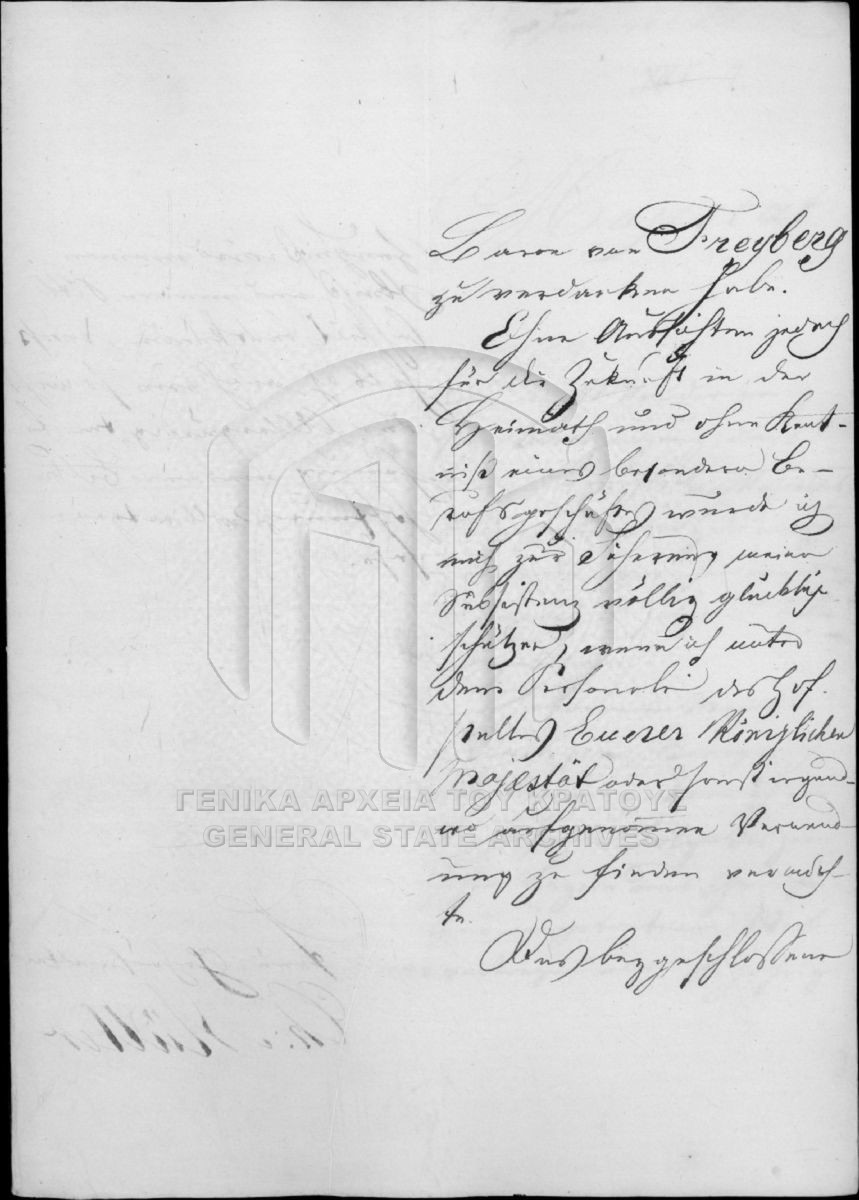 Baron von Freyberg
zu verdanken habe.
Ohne Aussichten jedoch
für die Zukunft in der
Heimath und ohne Kent-
niß eines besondern Be-
rufsgeschäftes würde ich
mich zur Sicherung meiner
Subsistenz völlig glücklich
schätzen, wenn ich unter
dem Personale des Hof-
staltes Euerer Königlichen
Majestät oder sonst irgend-
wo aufgenomen Verwend-
ung zu finden vermöch-
te.
Das beygeschlossene
ΓΕΝΙΚΑ ΑΡΧΕΙΑ ΤΟΥ ΚΡΑΤΟΥΣ
GENERAL STATE ARCHIVES